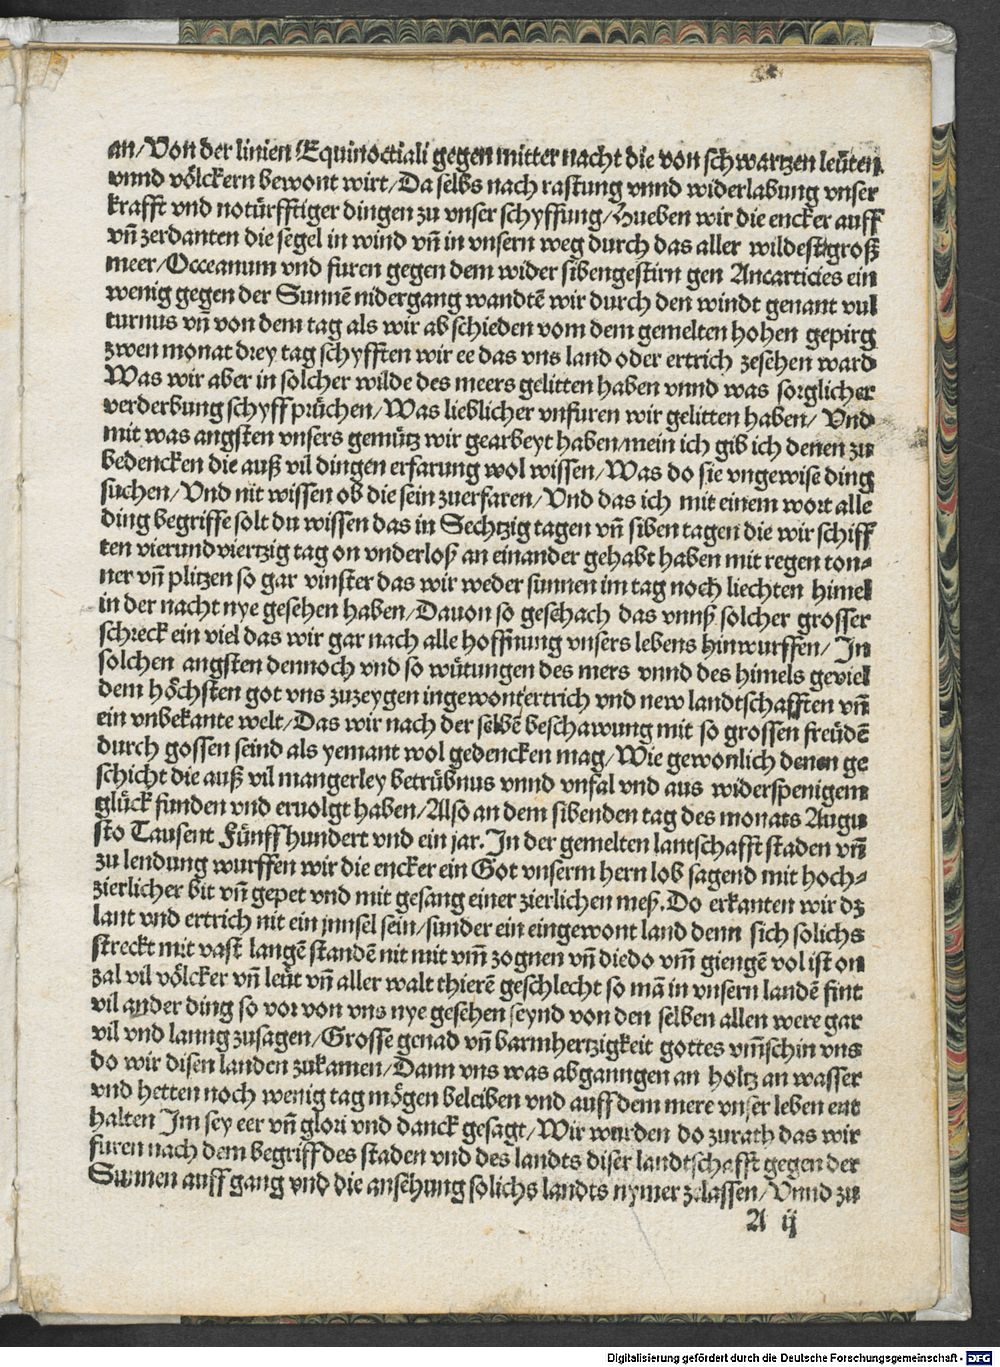 an/Von der linien Equinoctiali gegen mitter nacht die von schwartzen leüten
vnnd völckern bewont wirt/Da selbs nach rastung vnnd widerlabung vnser
krafft vnd notürfftiger dingen zu vnser schyffung/Hueben wir die encker auff
vñ zerdanten die segel in wind vñ in vnsern weg durch das aller wildest groß
meer/Occeanum vnd furen gegen dem wider sibengestirn gen Ancarticies ein
wenig gegen der Sunnē nidergang wandtē wir durch den windt genant vul
turnus vñ von dem tag als wir ab schieden vom dem gemelten hohen gepirg
zwen monat drey tag schyfften wir ee das vns land oder ertrich zesehen ward
Was wir aber in solcher wilde des meers gelitten haben vnnd was sorglicher
verderbung schyffprüchen/Was lieblicher vnfuren wir gelitten haben/ Vnd
mit was angsten vnsers gemütz wir gearbeyt haben/mein ich gib ich denen zu
bedencken die auß vil dingen erfarung wol wissen/Was do sie vngewise ding
suchen/Vnd nit wissen ob die sein zuerfaren/Vnd das ich mit einem wort alle
ding begriffe solt du wissen das in Sechtzig tagen vñ siben tagen die wir schiff
ten vierund viertzig tag on vnderloß an einander gehabt haben mit regen ton⸗
ner vñ plitzen so gar vinster das wir weder sunnen im tag noch liechten himel
in der nacht nye gesehen haben/Dauon so geschach das vnnß solcher grosser
schreck ein viel das wir gar nach alle hoffnung vnsers lebens hinwurffen/ In
solchen angsten dennoch vnd so wütungen des mers vnnd des himels geviel
dem höchsten got vns zuzeygen ingewont ertrich vnd new landtschafften vñ
ein vnbekante welt/Das wir nach der selbē beschawung mit so grossen freüdē
durch gossen seind als yemant wol gedencken mag/Wie gewonlich denen ge
schicht die auß vil mangerley betrübnus vnnd vnfal vnd aus widerspenigem
glück funden vnd ervolgt haben/Also an dem sibenden tag des monats Augu
sto Tausent Fünffhundert vnd ein jar. In der gemelten lantschafft staden vñ
zu lendung wurffen wir die encker ein Got vnserm hern lob sagend mit hoch⸗
zierlicher bit vñ gepet vnd mit gesang einer zierlichen meß. Do erkanten wir dz
lant vnd ertrich nit ein jnnsel sein/sunder ein eingewont land denn sich solichs
streckt mit vast langē standē nit mit vm̃ zognen vñ diedo vm̃ giengē vol ist on
zal vil völcker vñ leüt vñ aller walt thierē geschlecht so mā in vnsern landē fint
vil ander ding so vor von vns nye gesehen seynd von den selben allen were gar
vil vnd lanng zusagen/Grosse genad vñ barmhertzigkeit gottes vm̃schin vns
do wir disen landen zukamen/Dann vns was abganngen an holtz an wasser
vnd hetten noch wenig tag mögen beleiben vnd auff dem mere vnser leben ent
halten Im sey eer vñ glori vnd danck gesagt/Wir wurden do zurath das wir
furen nach dem begriff des staden vnd des landts diser landtschafft gegen der
Sunnen auff gang vnd die ansehung solichs landts nymer zelassen/Vnnd zu
A ij
Digitalisierung gefördert durch die Deutsche Forschungsgemeinschaft - DFG